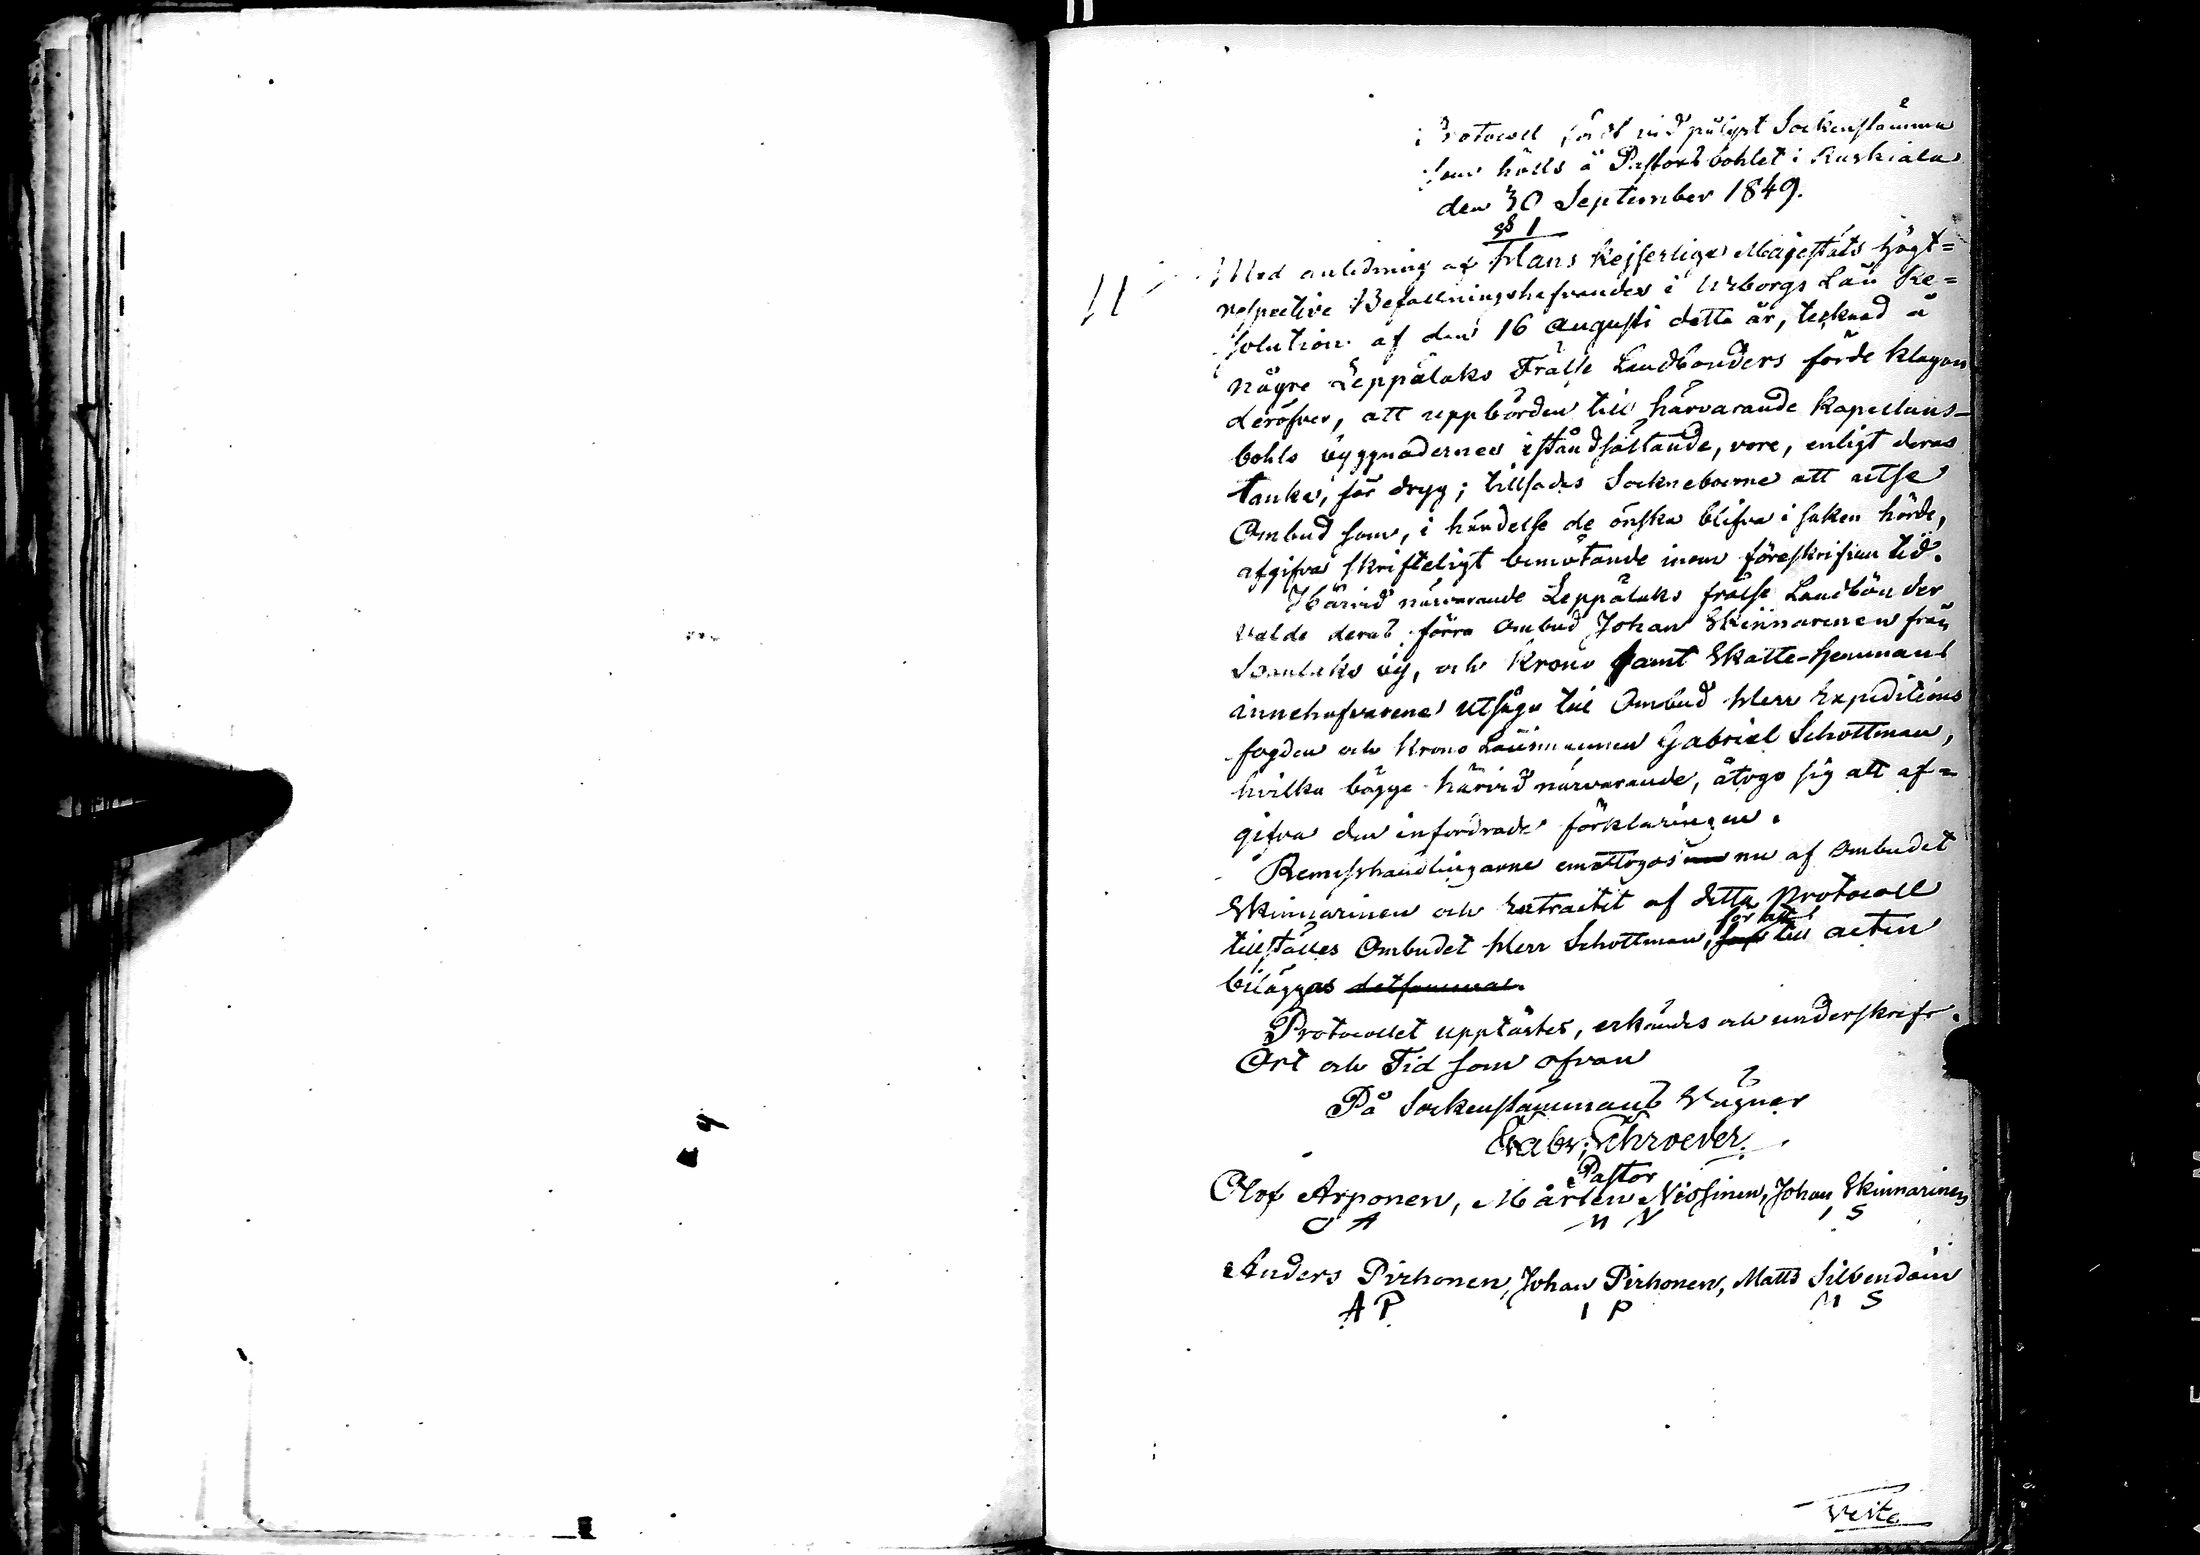 Protocoll fördt vid pålyst Sockenstämma
som hölls å Pastorsbohlet i Ruskiala
den 30 September 1849.
§ 1
Med anledning af Hans Kejserliga Majestäts högt=
respective Befallningshafvandes i Wiborgs Län Re=
solution af den 16 Augusti detta år, tecknad å
någre Leppälaks Frälse Landbönders förde klagan
deröfver, att uppbörden till härvarande Kapellans-
bohls byggnadernes iståndsättande, vore, enligt deras
tanke, för dryg; tillsades Sockneboerne att utse
Ombud som, i händelse de önska blifva i saken hörde,
afgifva skrifteligt bemötande inom föreskrifven tid.
Härvid närvarande Leppälaks frälse Landbönder
valde deras förra Ombud Johan Skinnarinen från
Soanlaks by, och Krono samt Skatte-hemmans
innehafvarene utsågo till Ombud Herr Expeditions
fogden och Krono Länsmannen Gabriel Schottman,
hvilka bägge härvid närvarande, åtogo sig att af=
gifva den infordrade förklaringen.
Remisshandlingarne emottogos nu af Ombudet
Skinnarinen och Extractet af detta Protocoll
tillställes Ombudet Herr Schottman, för att till acten
biläggas detsamma.
Protocollet upplästes, erkändes och underskrefs.
Ort och Tid som ofvan
På Sockenstämmans Vägnar
Gabr: Schroeder.
Pastor
Olof Arponen, Mårten Nissinen, Johan Skinnarinen
O A M N I S
Anders Pirhonen, Johan Pirhonen, Matts Silvendoin
A P I P M S
Verte